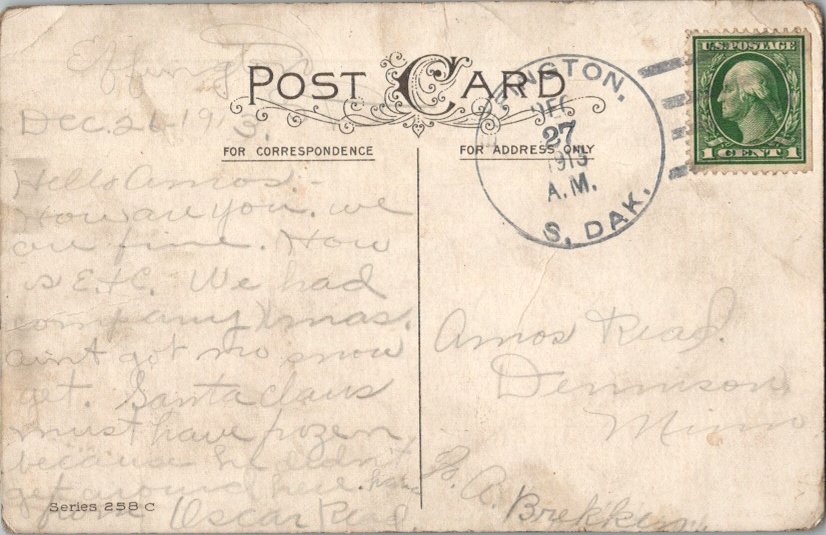 Effington
POST CARD
Dec. 26-1913.
FOR CORRESPONDENCE
FOR ADDRESS ONLY
U.S. POSTAGE
1 CENT 1
INGTON,
DEC
27
1913
A.M.
S. DAK.
Hello Amos -
How are you. we
are fine. How
is E.+C. We had
company Xmas.
aint got no snow
yet. Santa Claus
must have frozen,
because he didn't
get round here.
from Oscar Read.
Amos Read.
Dennison
Minn
A. Brekken
Series 258 C